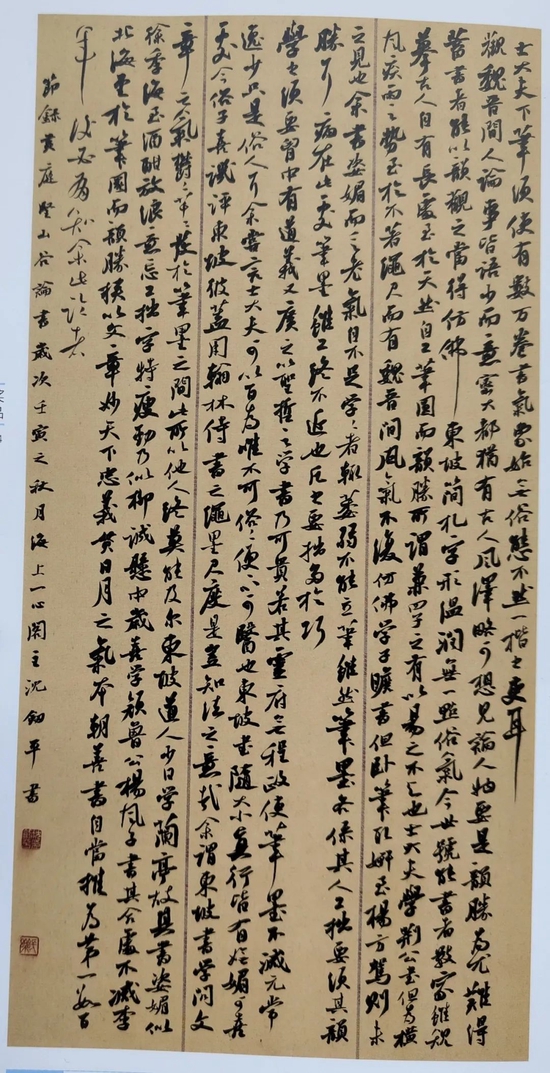 士大夫下笔须使有数万卷书气象始无俗态不然一楷书吏耳
观魏晋间人论事皆语少而意密大都犹有古人风泽略可想见论人物要是韵胜为尤难得
蓄书者能以韵观之当得仿佛 东坡简札字形温润无一点俗气今世号能书者数家虽规
摹古人自有长处至于天然自工笔圆而韵胜所谓兼四子之有以易之不与也士大夫学荆公书但为横
风疾雨之势至于不著绳尺而有魏晋间风气不复仿佛学子瞻书但卧笔取妍至
之见也余书姿媚而乏老气自不足学学者辄萎弱不能立笔虽然笔墨各系其人工拙要须其韵
胜耳病在此处笔墨虽工终不近也凡书要拙多于巧
学书须要胸中有道义又广之以圣哲之学书乃可贵若其灵府无程政使笔墨不减元常
逸少只是俗人耳余尝言士大夫可以百为唯不可俗俗便不可医也东坡书随大小真行皆有妩媚可喜
处今俗子喜讥评东坡彼盖用翰林侍书之绳墨尺度是岂知法之意哉余谓东坡书学问文
章之气郁郁芊芊发于笔墨之间此所以他人终莫能及尔东坡道人少日学兰亭故其书姿媚似
徐季海至酒酣放浪意忘工拙字特瘦劲乃似柳诚悬中岁喜学颜鲁公杨风子书其合处不减李
北海至于笔圆而韵胜挟以文章妙天下忠义贯日月之气本朝善书自当推为第一数百
年后必有知余此论者
节录黄庭坚山谷论书岁次壬寅之秋月海上一心阁主沈剑平书